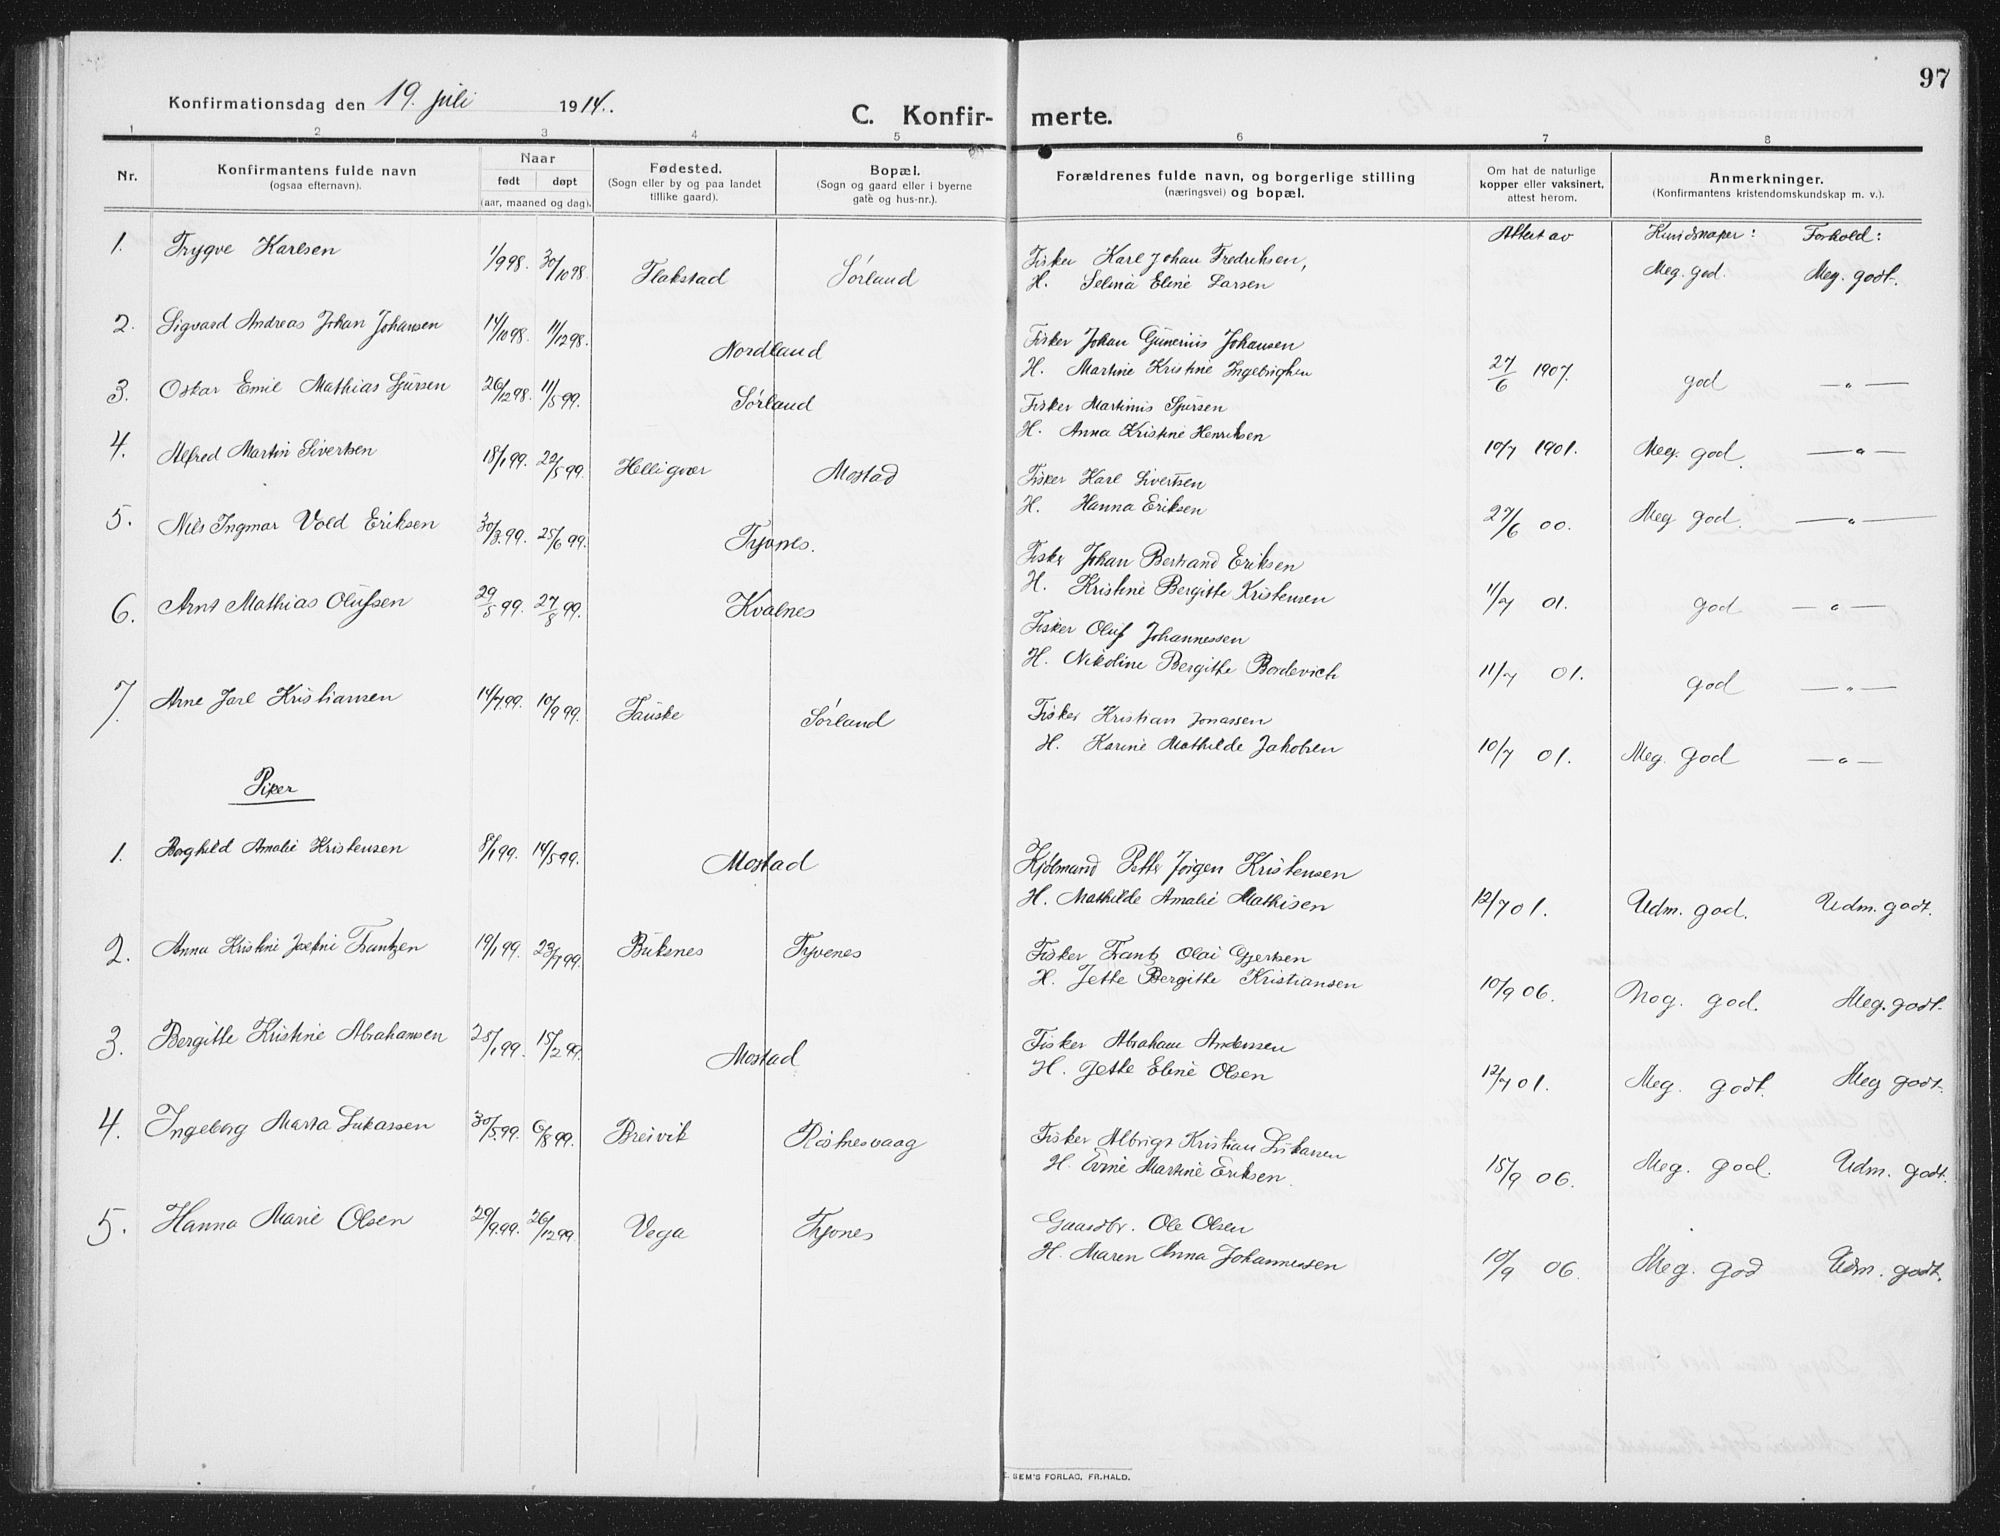 97
Konfirmationsdag den 19. juli 1914.
C. Konfir- merte.
1 2 3 4 5 6 7 8
Nr.
Konfirmantens fulde navn
(ogsaa efternavn).
Naar
født døpt
(aar, maaned og dag).
Fødested.
(Sogn eller by og paa landet
tillike gaard).
Bopæl.
(Sogn og gaard eller i byerne
gate og hus-nr.).
Forældrenes fulde navn, og borgerlige stilling
(næringsvei) og bopæl.
Om hat de naturlige
kopper eller vaksinert,
attest herom.
Anmerkninger.
(Konfirmantens kristendomskundskap m. v.).
Attest av Kundskaper: Forhold:
1. Trygve Karlsen 1/9 98. 30/10 98. Flakstad Sørland Fisker Karl Johan Fredriksen, Meg. god. Meg. godt.
H. Selina Eline Larsen
2. Sigvard Andreas Johan Johansen 14/10 98. 11/12 98. Nordland Fisker Johan Gunerius Johansen
H. Martine Kristine Ingebrigtsen 27/6 1907. god — " —
3. Oskar Emil Mathias Sjursen 26/12 98. 11/5 99. Sørland Fisker Martinus Sjursen
H. Anna Kristine Henriksen 10/7 1901. Meg. god. — " —
4. Alfred Martin Sivertsen 18/1 99. 22/5 99. Helligvær Mostad Fisker Karl Sivertsen
H. Hanna Eriksen 27/6 00. Meg god. — " —
5. Nils Ingmar Vold Eriksen 30/3 99. 25/6 99. Tyvnes. Fisker Johan Bertrand Eriksen
H. Kristine Bergitte Kristensen 11/7 01. god — " —
6. Arnt Mathias Olufsen 29/5 99. 27/8 99. Kvalnes Fisker Oluf Johannessen
H. Nikoline Bergitte Bordevich 11/7 01. god — " —
7. Arne Jarl Kristiansen 14/7 99. 10/9 99. Fauske Sørland Fisker Kristian Jonassen
H. Karine Mathilde Jakobsen 10/7 01. Meg. god — " —
Piker
1. Borghild Amalie Kristensen 8/1 99. 14/5 99. Mostad Kjøbmand Petter Jørgen Kristensen
H. Mathilde Amalie Mathisen 12/7 01. Udm. god. Udm. godt.
2. Anna Kristine Josefine Frantzen 19/1 99. 23/7 99. Buksnes Tyvenes Fisker Frantz Olai Gjertsen
H. Jette Bergitte Kristiansen 10/9 06. Nog. god. Meg. godt.
3. Bergitte Kristine Abrahamsen 25/1 99. 15/2 99. Mostad Fisker Abraham Anderssen
H. Jette Eline Olsen 12/7 01. Meg. godt. Meg godt.
4. Ingeborg Marta Lukassen 30/5 99. 6/8 99. Breivik Røstnesvaag Fisker Albrigt Kristian Lukassen
H. Evine Martine Eriksen. 15/9 06. Meg. god. Udm. godt.
5. Hanna Marie Olsen 29/9 99. 26/12 99. Vega Tyvnes Gaardbr. Ole Olsen
H. Maren Anna Johannessen 10/9 06. Meg. god Udm. godt.
SEM'S FORLAG, FR.HALD.